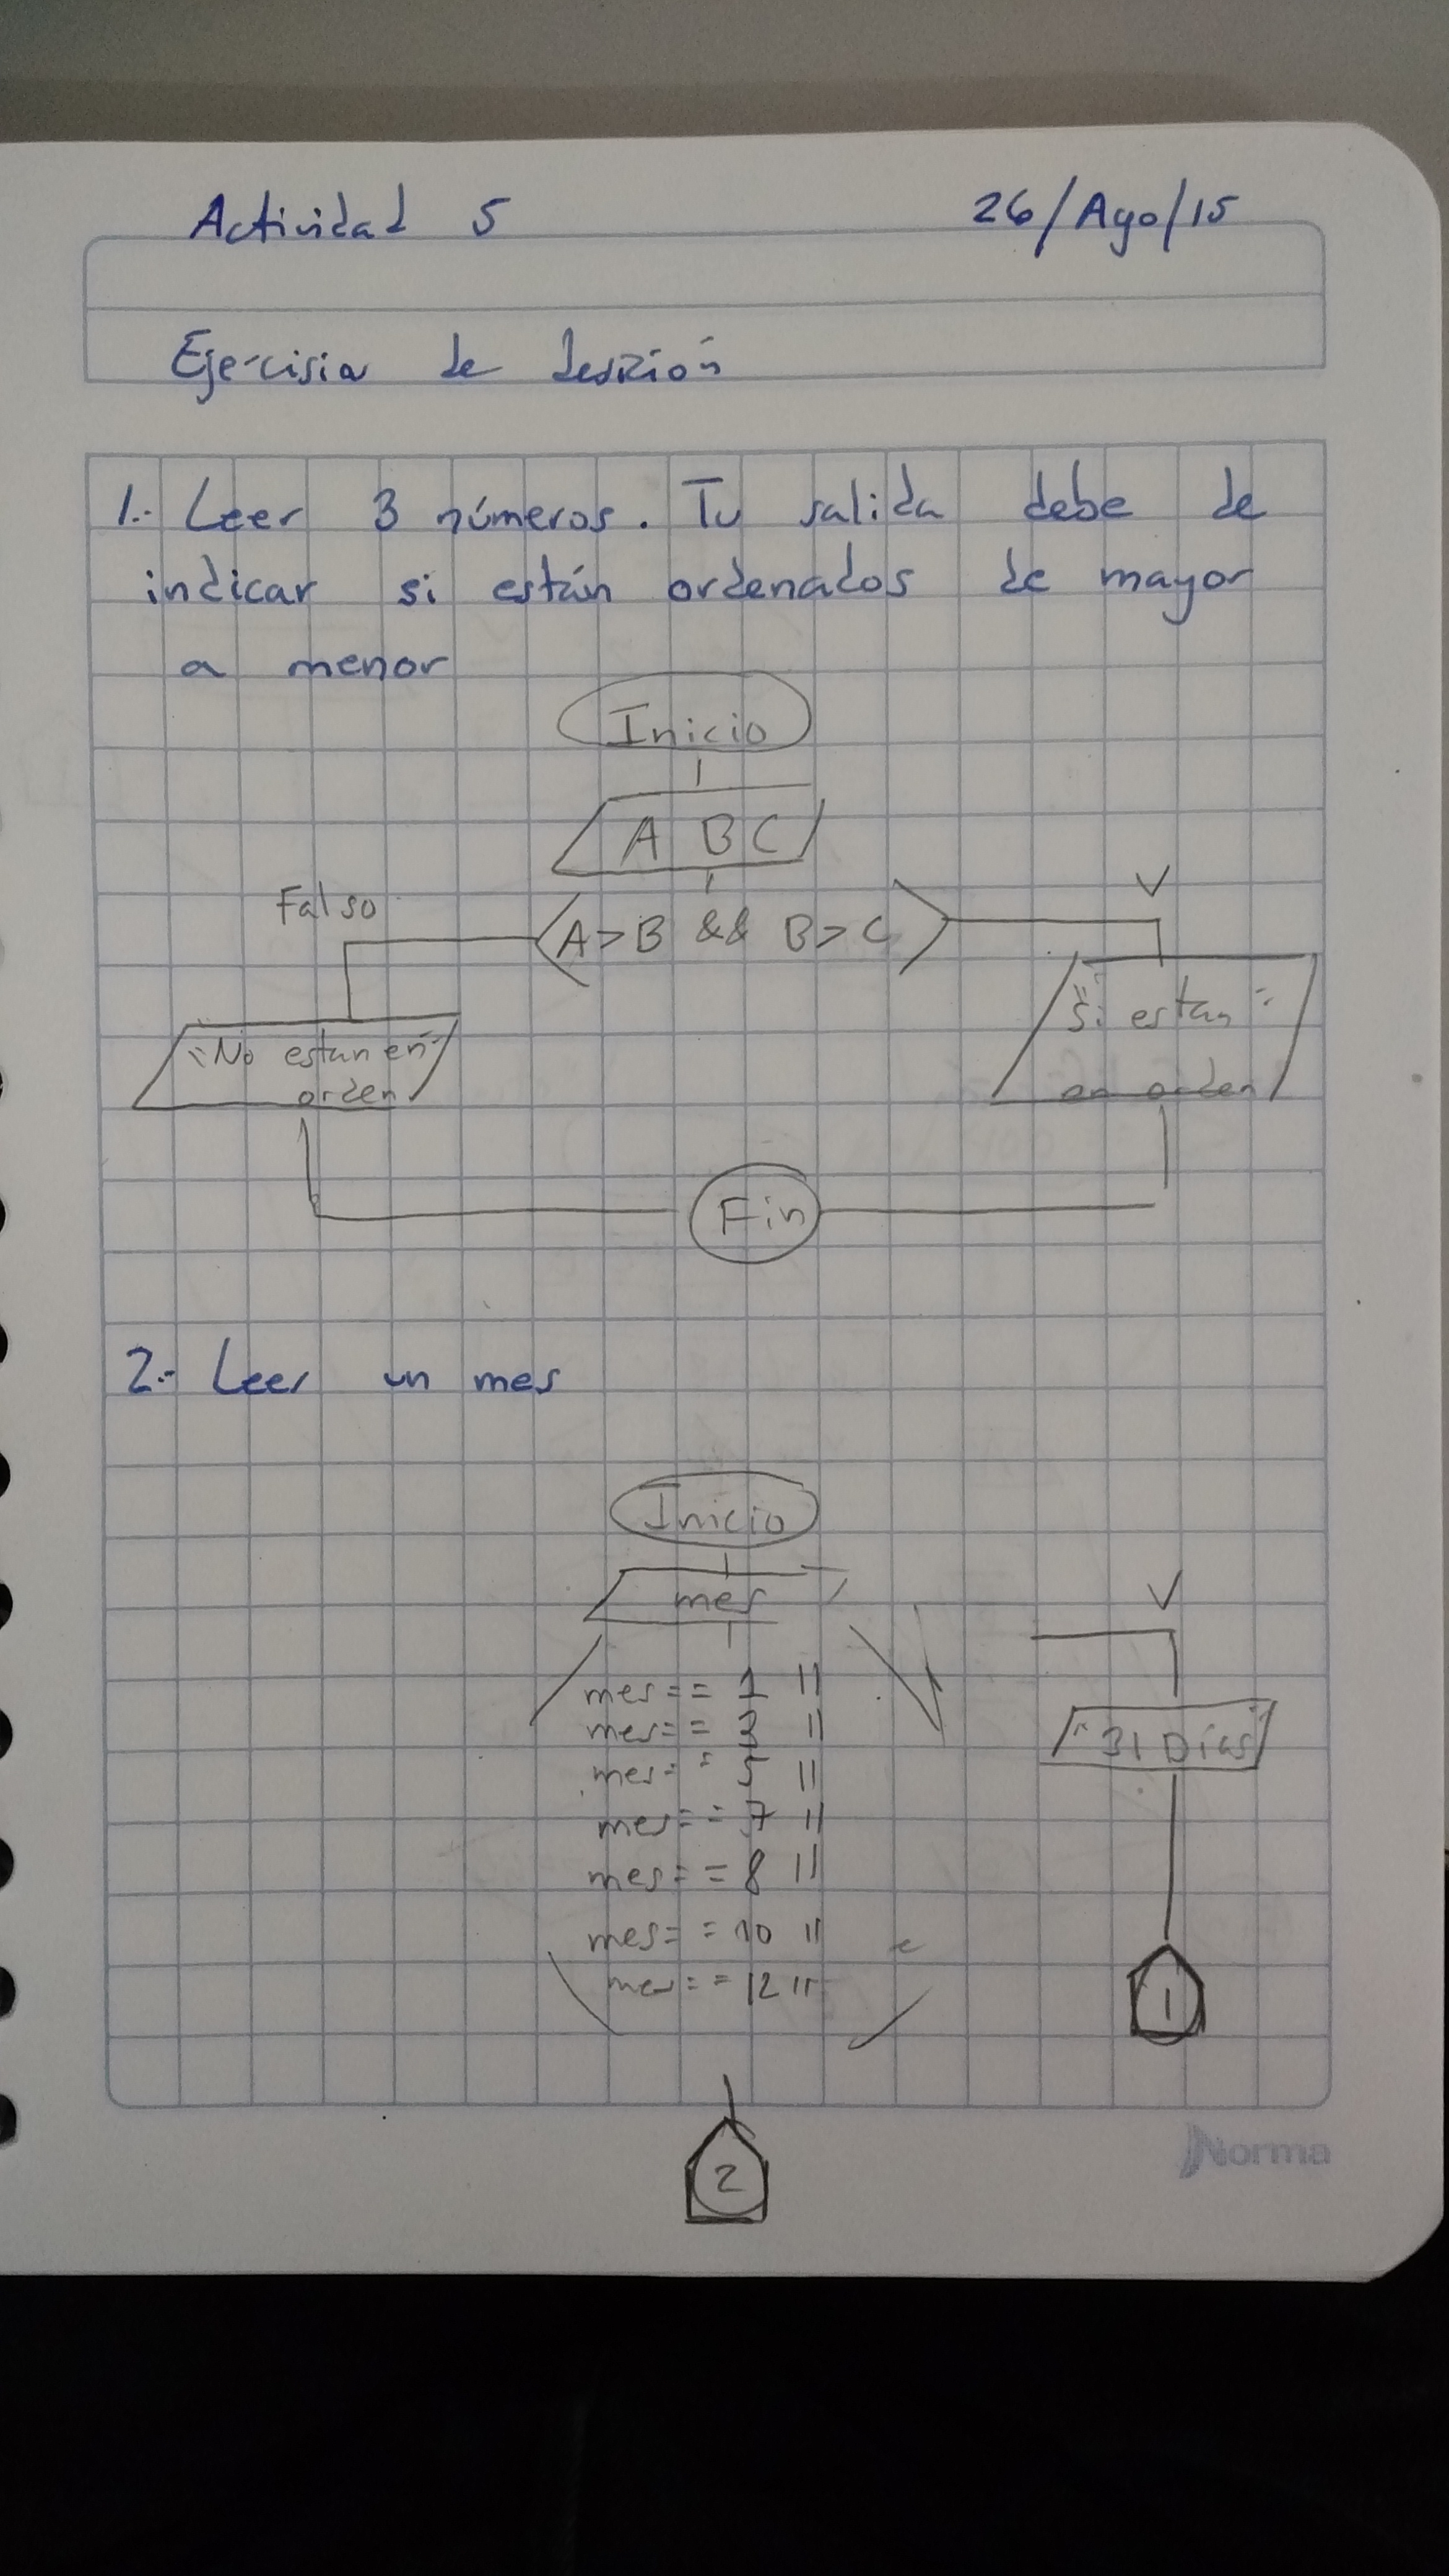 Actividad 5 26/Ago/15
Ejercisia de desición
1.- Leer 3 números. Tu salida debe de
indicar si están ordenados de mayor
a menor
Inicio
A B C
Falso V
A > B && B > C
"Si estan"
"No estan en"
orden
en orden
Fin
2.- Leer un mes
Inicio
mes V
mes == 1 ||
mes == 3 || "31 Días"
mes == 5 ||
mes == 7 ||
mes == 8 ||
mes == 10 ||
mes == 12 || 1
2
Norma